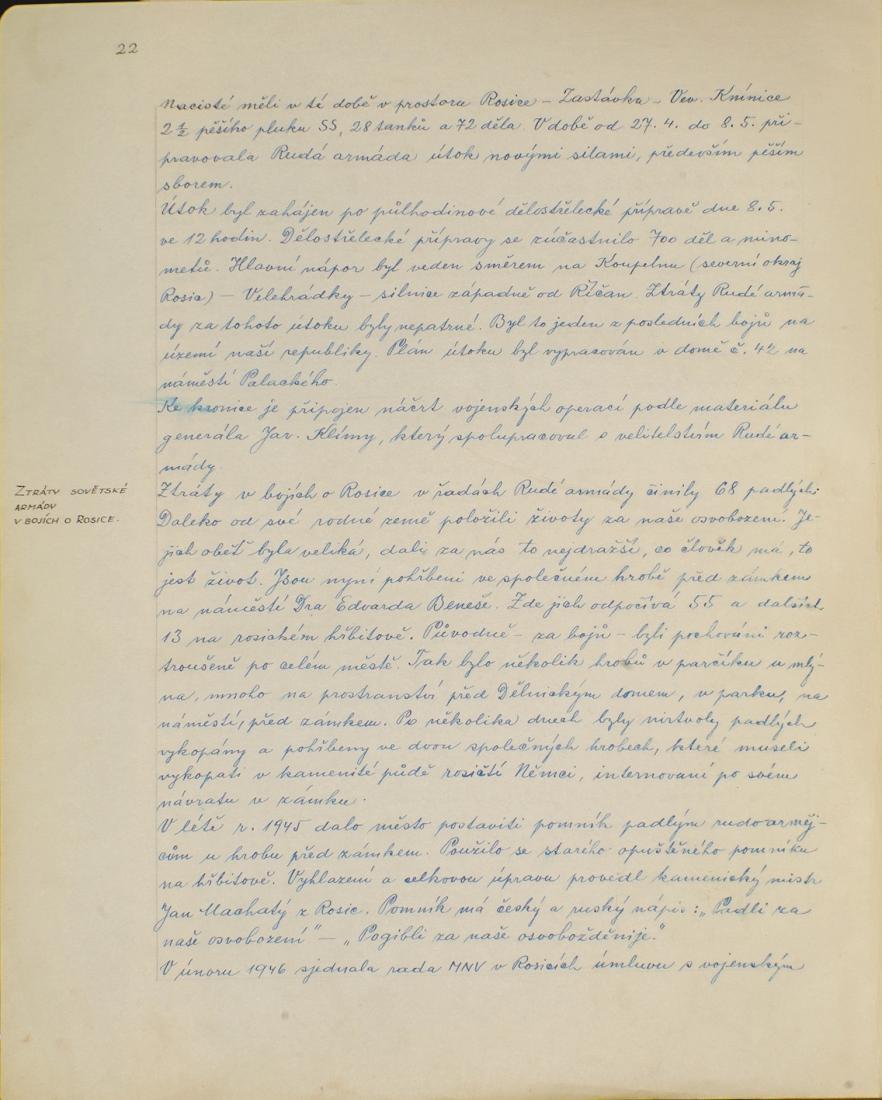 22
Nacisté měli v té době v prostoru Rosice – Zastávka – Vev. Knínice
2 ½ pěšího pluku SS, 28 tanků a 72 děla. V době od 27. 4. do 8. 5. při-
pravovala Rudá armáda útok novými silami, především pěším
sborem.
Útok byl zahájen po půlhodinové dělostřelecké přípravě dne 8. 5.
ve 12 hodin. Dělostřelecké přípravy se zúčastnilo 700 děl a mino-
metů. Hlavní nápor byl veden směrem na Koupelnu (severní okraj
Rosic) – Velehrádky – silnice západně od Říčan. Ztráty Rudé armá-
dy za tohoto útoku byly nepatrné. Byl to jeden z posledních bojů na
území naší republiky. Plán útoku byl vypracován v domě č. 42 na
náměstí Palackého.
Ke kronice je připojen náčrt vojenských operací podle materiálu
generála Jar. Klímy, který spolupracoval s velitelstvím Rudé ar-
mády.
ZTRÁTY SOVĚTSKÉ
ARMÁDY
V BOJÍCH O ROSICE.
Ztráty v bojích o Rosice v řadách Rudé armády činily 68 padlých.
Daleko od své rodné země položili životy za naše osvobození. Je-
jich oběť byla veliká, dali za nás to nejdražší, co člověk má, to
jest život. Jsou nyní pohřbeni ve společném hrobě před zámkem
na náměstí Dra Edvarda Beneše. Zde jich odpočívá 55 a dalších
13 na rosickém hřbitově. Původně – za bojů – byli pochováni roz-
troušeně po celém městě. Tak bylo několik hrobů v parčíku u mlý-
na, mnoho na prostranství před Dělnickým domem, v parku, na
náměstí, před zámkem. Po několika dnech byly mrtvoly padlých
vykopány a pohřbeny ve dvou společných hrobech, které museli
vykopati v kamenité půdě rosičtí Němci, internovaní po svém
návratu v zámku.
V létě r. 1945 dalo město postaviti pomník padlým rudoarměj-
cům u hrobu před zámkem. Použilo se starého opuštěného pomníku
na hřbitově. Vyhlazení a celkovou úpravu provedl kamenický mistr
Jan Machatý z Rosic. Pomník má český a ruský nápis: „Padli za
naše osvobození" – „Pogibli za naše osvobožděnije."
V únoru 1946 sjednala rada MNV v Rosicích úmluvu s vojenským